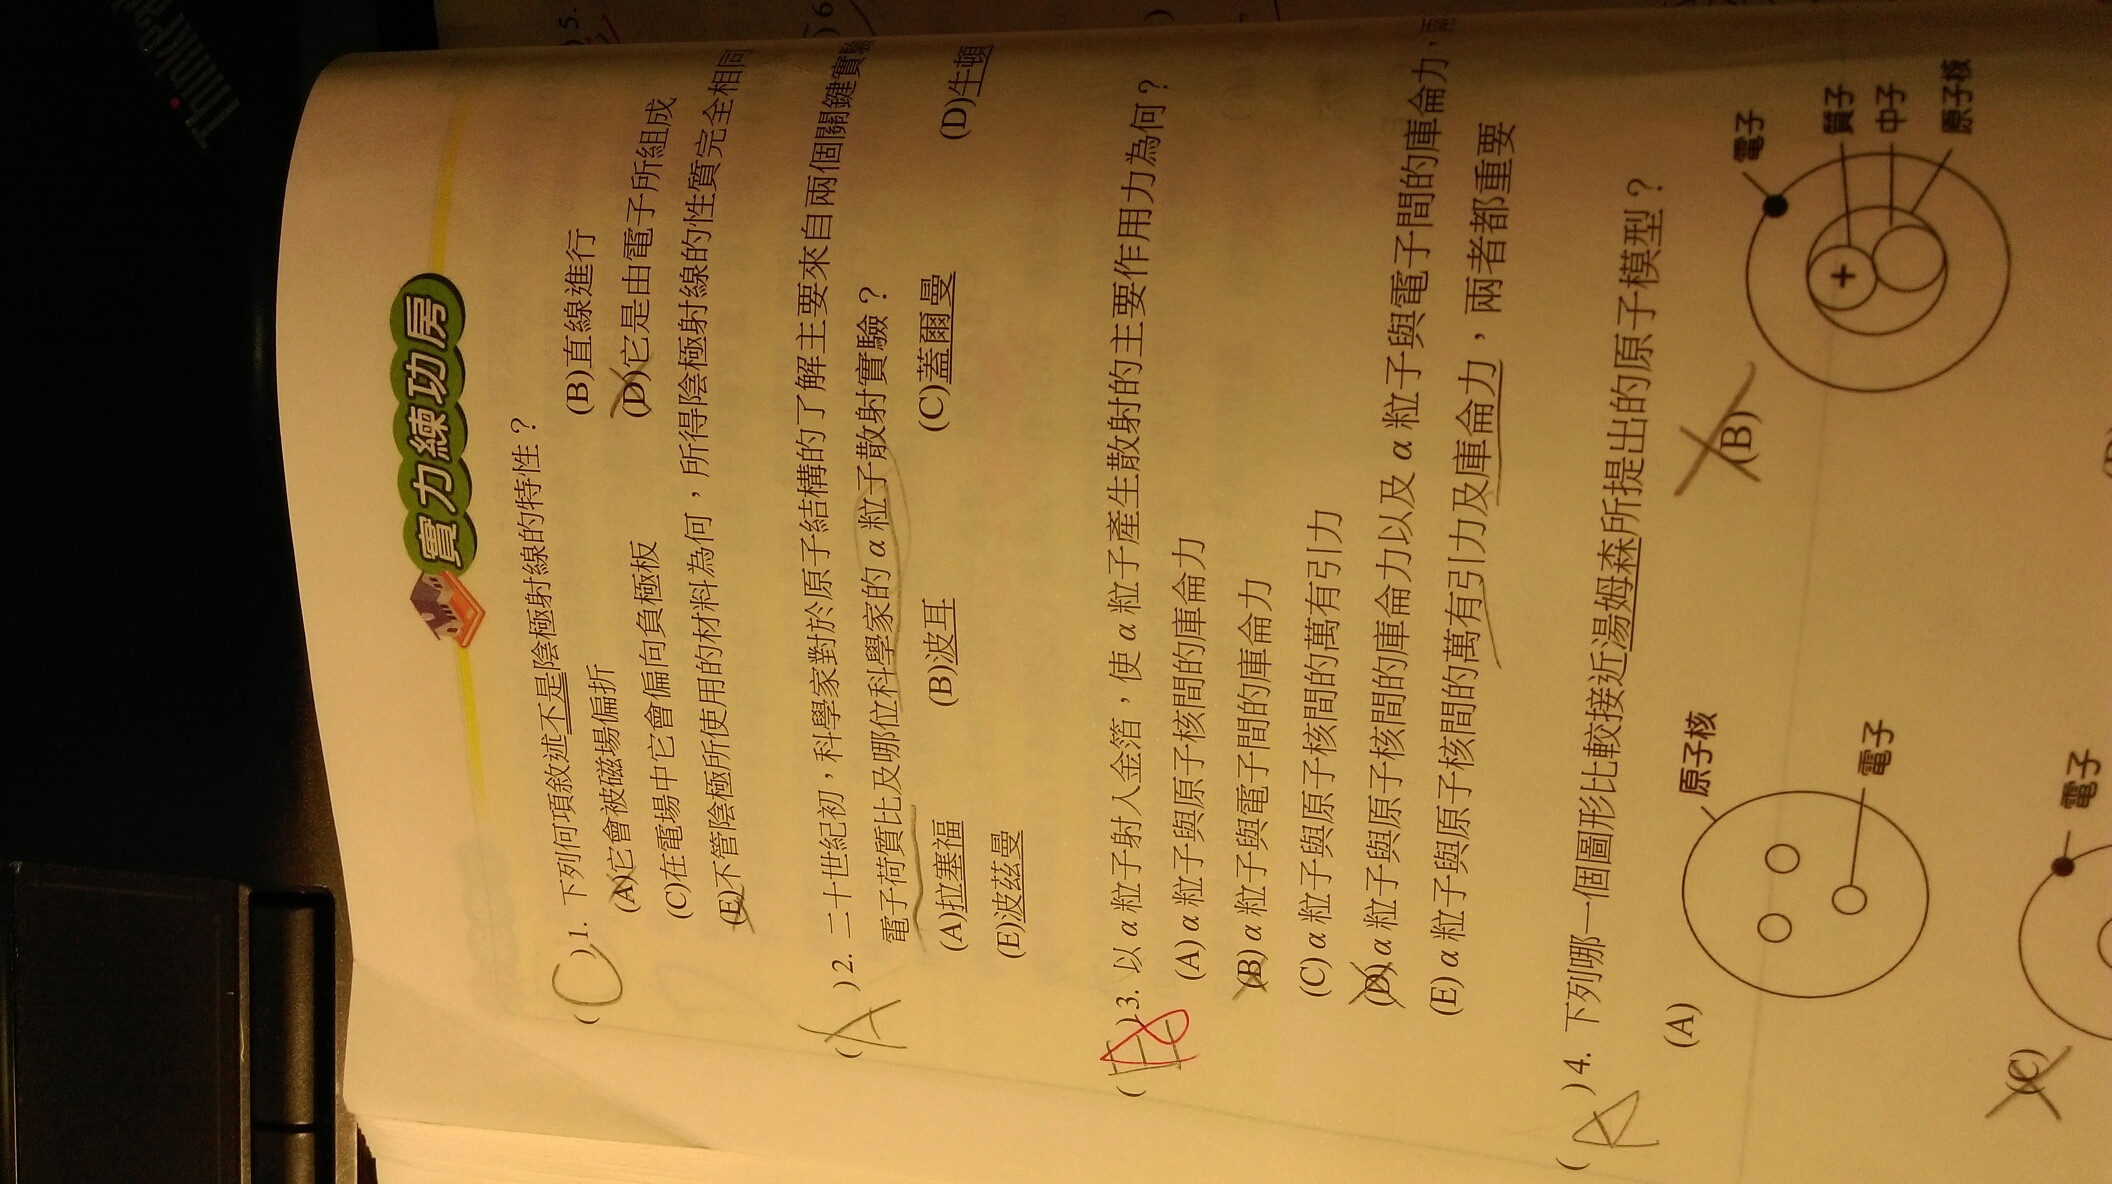 ThinkPad
5.
6
實力練功房
( C )1. 下列何項敘述不是陰極射線的特性？
(A)它會被磁場偏折 (B)直線進行
(C)在電場中它會偏向負極板 (D)它是由電子所組成
(E)不管陰極所使用的材料為何，所得陰極射線的性質完全相同
( A )2. 二十世紀初，科學家對於原子結構的了解主要來自兩個關鍵實驗
電子荷質比及哪位科學家的 α 粒子散射實驗？
(A)拉塞福 (B)波耳 (C)蓋爾曼 (D)牛頓
(E)波茲曼
( E A )3. 以 α 粒子射入金箔，使 α 粒子產生散射的主要作用力為何？
(A) α 粒子與原子核間的庫侖力
(B) α 粒子與電子間的庫侖力
(C) α 粒子與原子核間的萬有引力
(D) α 粒子與原子核間的庫侖力以及 α 粒子與電子間的庫侖力，兩
(E) α 粒子與原子核間的萬有引力及庫侖力，兩者都重要
( A )4. 下列哪一個圖形比較接近湯姆森所提出的原子模型？
(A) 原子核 電子
(B) 電子 質子 中子 原子核 +
(C) 電子